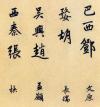 巴西鄧
文原
婺胡
長孺
吳興趙
孟頫
西秦張
抉